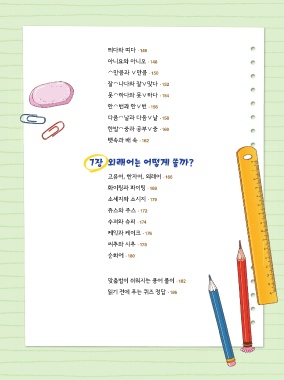 띄다와 띠다 · 146
아니요와 아니오 · 148
⌒만큼과 ∨만큼 · 150
잘⌒나다와 잘∨맞다 · 152
못⌒하다와 못∨하다 · 154
한⌒번과 한∨번 · 156
다음⌒날과 다음∨날 · 158
한밤⌒중과 공부∨중 · 160
뱃속과 배 속 · 162
7장 외래어는 어떻게 쓸까?
고유어, 한자어, 외래어 · 166
화이팅과 파이팅 · 168
소세지와 소시지 · 170
쥬스와 주스 · 172
수퍼와 슈퍼 · 174
케익과 케이크 · 176
씨추와 시추 · 178
순화어 · 180
맞춤법이 쉬워지는 용어 풀이 · 182
읽기 전에 푸는 퀴즈 정답 · 186